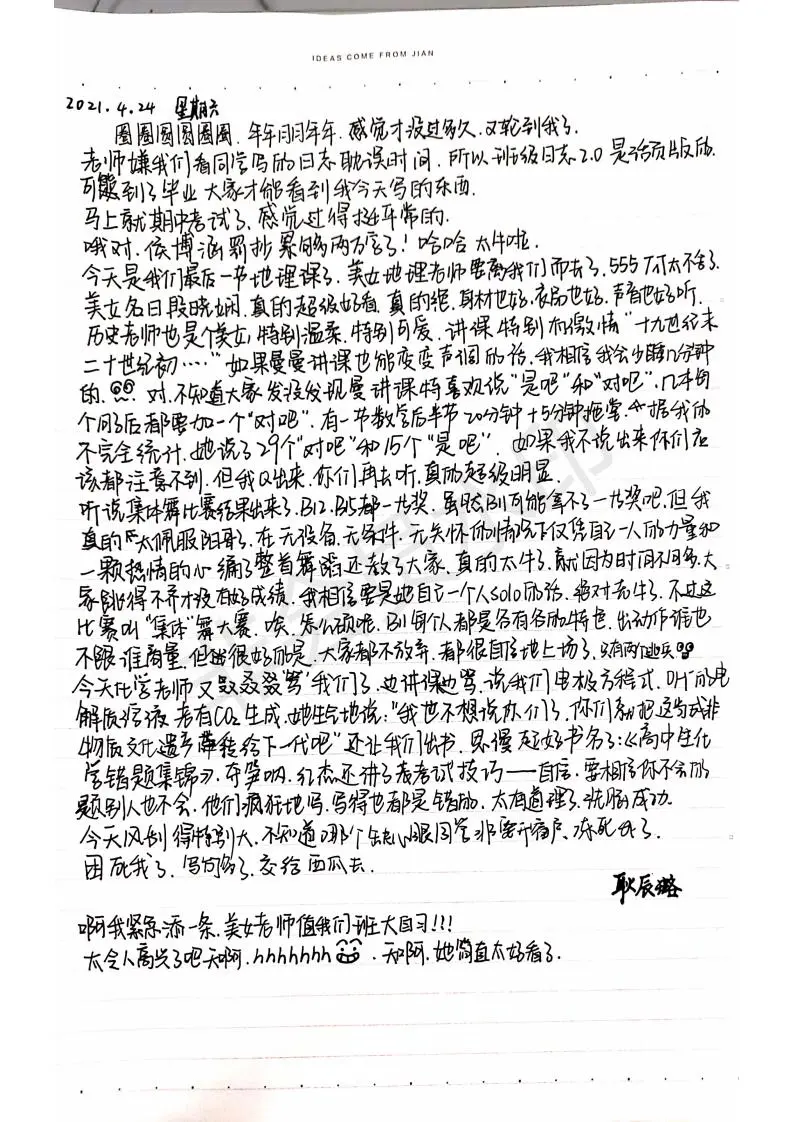 IDEAS COME FROM JIAN
2021.4.24 星期六
圈圈圆圆圈圈,年年月月年年,感觉才没过多久,又轮到我了.
老师嫌我们看同学写的日志耽误时间,所以班级日志2.0是活页版的.
可能到了毕业大家才能看到我今天写的东西.
马上就期中考试了,感觉过得挺平常的.
哦对,侯博涵罚抄累够两万字了!哈哈 太牛啦.
今天是我们最后一节地理课了,美女地理老师要离我们而去了,555 太不舍了.
美女名曰段晓娴,真的超级好看,真的绝,身材也好,衣品也好,声音也好听.
历史老师也是个美女,特别温柔,特别可爱,讲课特别有激情“十九世纪末
二十世纪初....”如果曼曼讲课也能变变声调的话,我相信我会少睡几分钟
的. 对,不知道大家发没发现曼讲课特喜欢说“是吧”和“对吧”,几乎每
个问号后都要加一个“对吧”,有一节数学后半节20分钟+5分钟拖堂,据我的
不完全统计,她说了29个“对吧”和15个“是吧”.如果我不说出来你们应
该都注意不到,但我Q出来,你们再去听,真的超级明显.
听说集体舞比赛结果出来了,B12、B15都一等奖,虽然B可能拿不了一等奖吧,但我
真的太佩服阳哥了,在无设备、无条件、无关怀的情况下仅凭自己一人的力量和
一颗热情的心编了整首舞蹈还教了大家,真的太牛了,就因为时间不够多,大
家跳得不齐才没有好成绩,我相信要是她自己一个人solo的话,绝对老牛了,不过这
比赛叫“集体”舞大赛,唉,怎么颁呢,别每个人都是各有各的特色,出动作谁也
不跟谁商量,但也很好的是,大家都不放弃,都很自信地上场了,
今天化学老师又叒叕骂我们了,边讲课边骂,说我们电极方程式,OH⁻的电
解质溶液 老有CO₂生成,她生气地说:“我也不想说你们了,你们别把这当成非
物质文化遗产 传给下一代吧”还让我们出书,思慢起好书名了:《高中生化
学错题集锦》,夺笋呐,红杰还讲了考试技巧——自信,要相信你不会的
题别人也不会,他们疯狂地写,写得也都是错的,太有道理了,洗脑成功.
今天风刮得特别大,不知道哪个缺心眼同学非要开窗户,冻死我了.
困死我了,写可多了,交给西瓜去.
耿辰璐
啊我紧急添一条,美女老师值我们班大自习!!!
太令人高兴了吧天啊,hhhhhhh ,天啊,她简直太好看了.